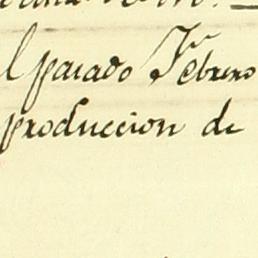 l pasado Febrero
produccion de